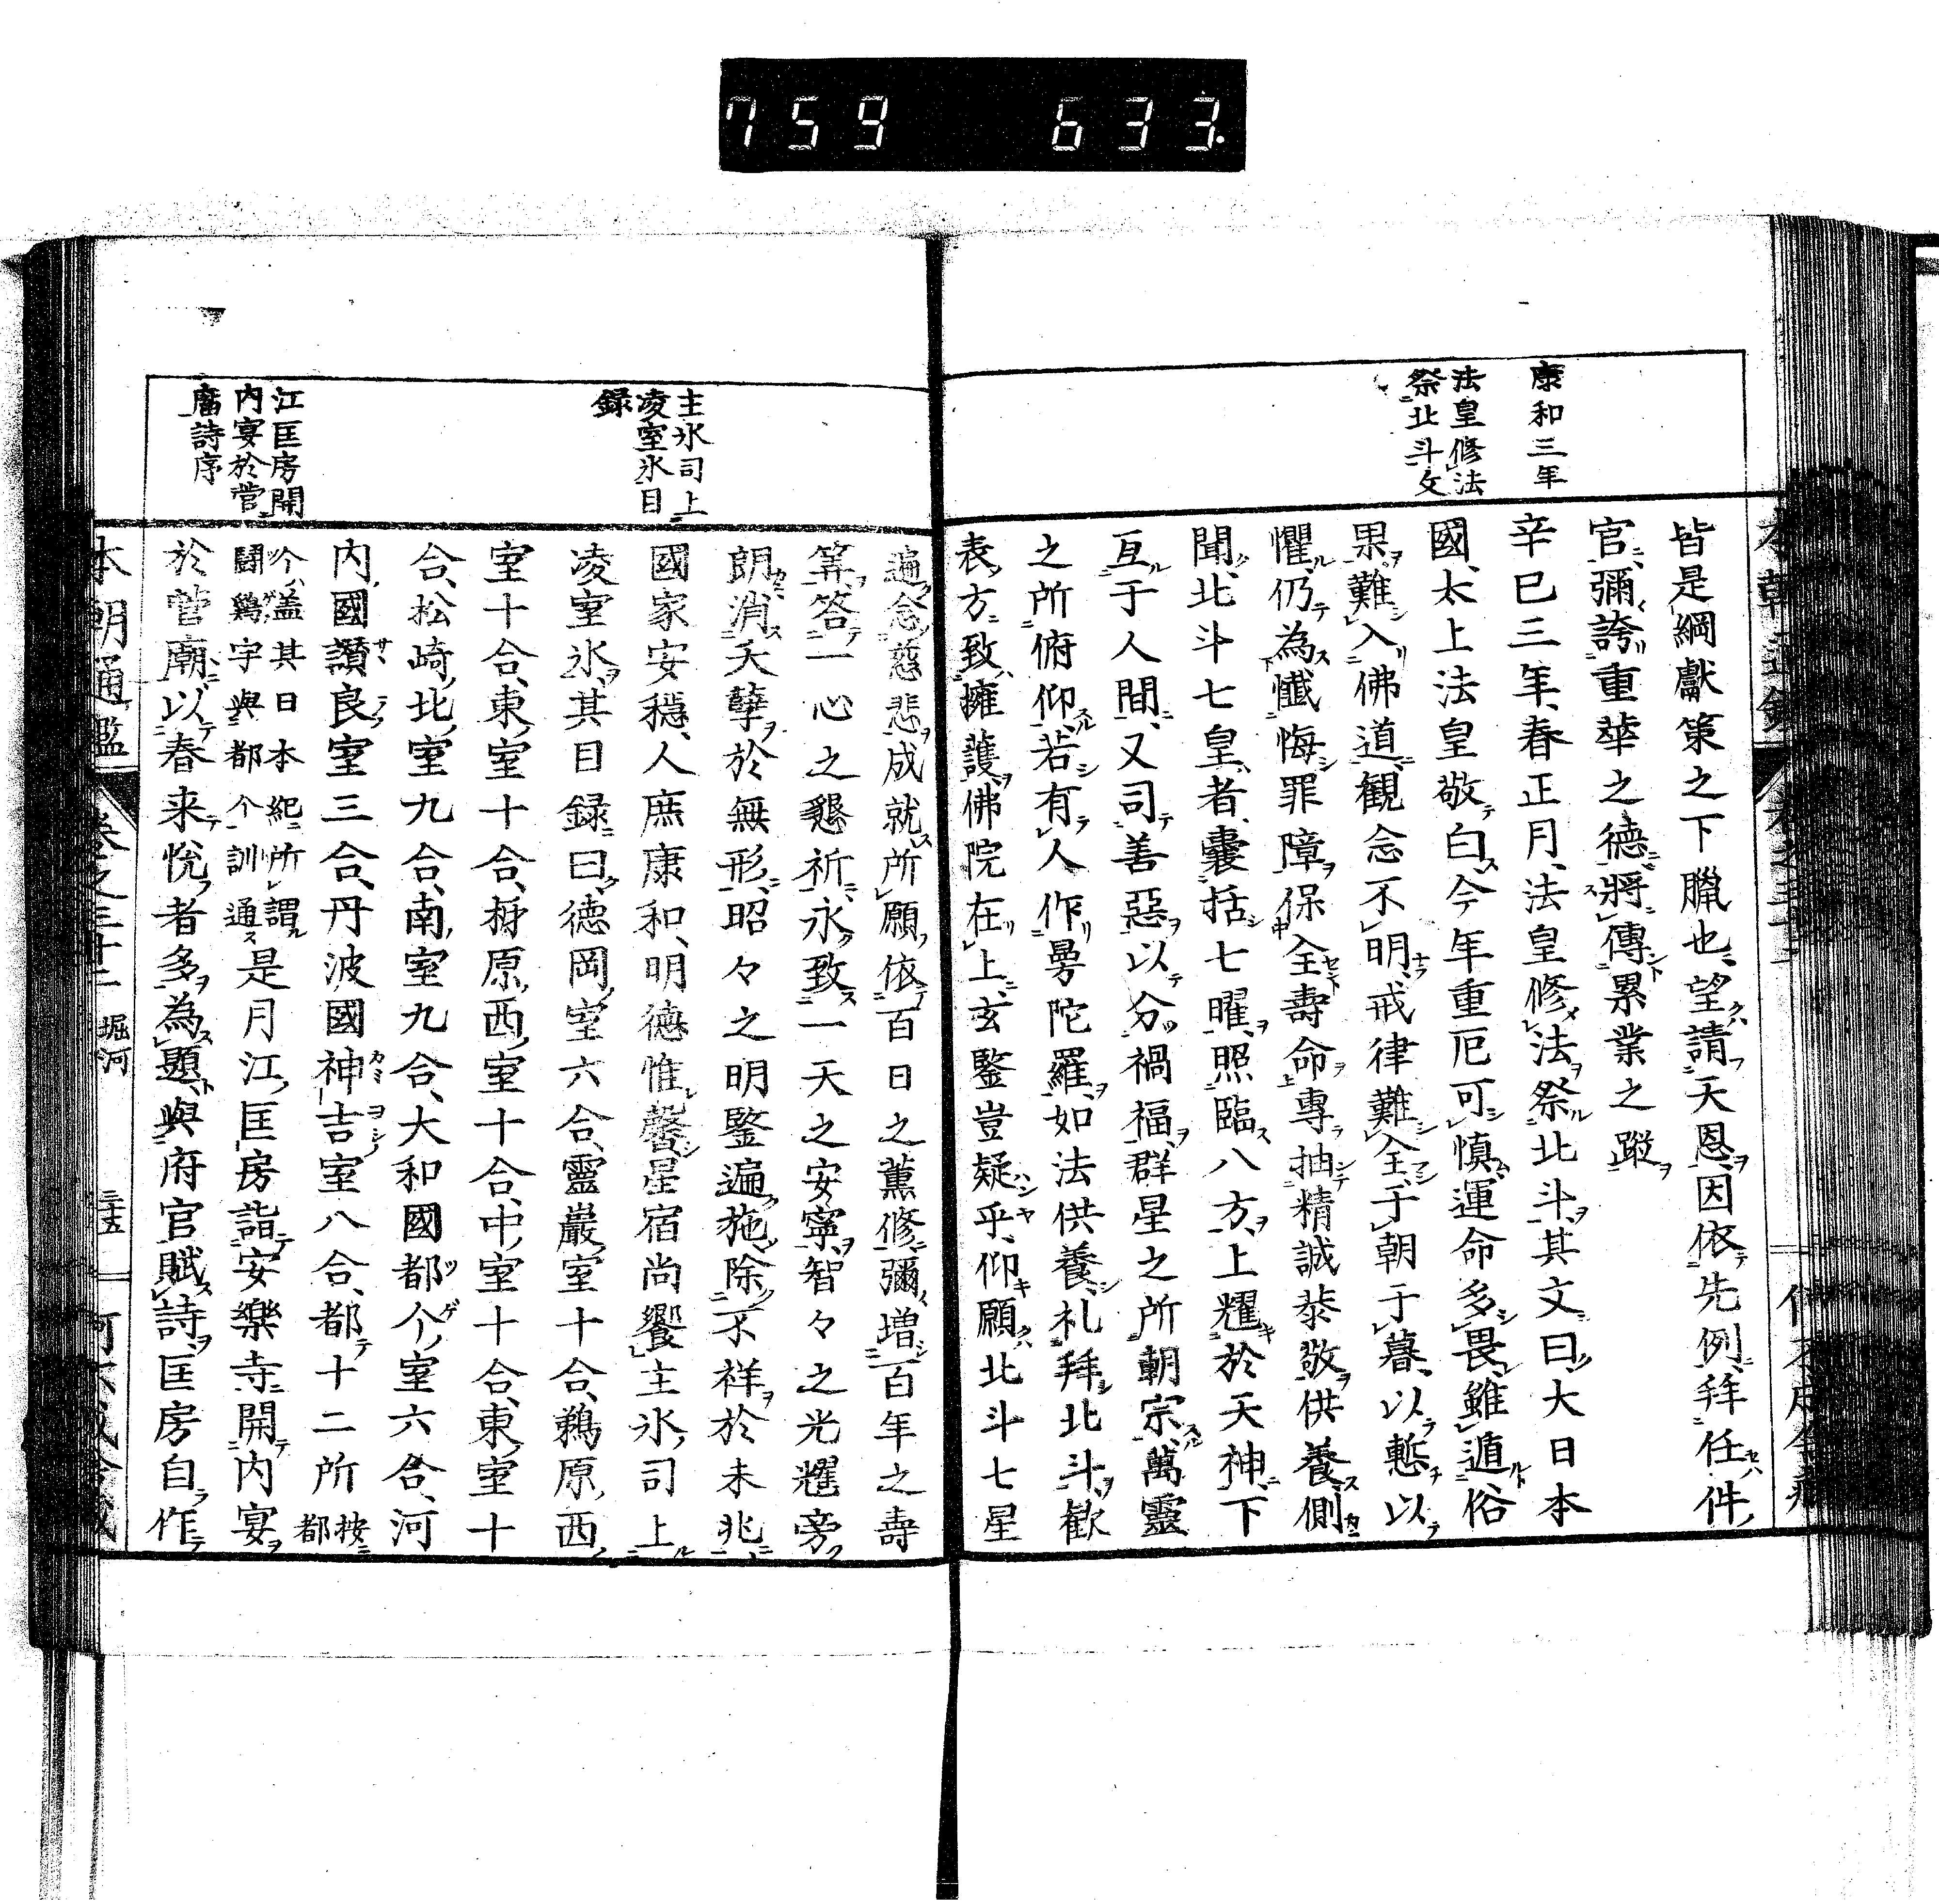 759 633.
康和三年
法皇修法
祭北斗文
皆是綱獻策之下臘也、望請天恩、因依先例、拜任件
官、彌誇重華之德、將傳累業之蹤
辛巳三年、春正月、法皇修法祭北斗、其文曰、大日本
國、太上法皇敬白、今年重厄可慎、運命多畏、雖遁俗
果、難入佛道、觀念不明、戒律難全、于朝于暮、以慙以
懼、仍為懺悔罪障、保全壽命、專抽精誠、恭敬供養、側
聞、北斗七皇者、囊括七曜、照臨八方、上耀於天神、下
亙于人間、又司善惡、以分禍福、群星之所朝宗、萬靈
之所俯仰、若有人作曼陀羅、如法供養、礼拜北斗、歡
表方致擁護、佛院在上、玄鑒豈疑乎、仰願北斗七星
主氷司上
凌室氷目
録
江匡房開
内宴於菅
廟詩序
遍念慈悲、成就所願、依百日之薰修、彌增百年之壽
筭、答一心之懇祈、永致一天之安寧、智々之光耀旁
朗、消夭孽於無形、昭々之明鑒遍施、除不祥於未兆
國家安穩、人庶康和、明德惟馨、星宿尚饗、主氷司上
凌室氷、其目録曰、德岡室六合、靈巖室十合、鵜原西
室十合、東室十合、栁原西室十合、中室十合、東室十
合、松崎北室九合、南室九合、大和國都介室六合、河
内國讃良室三合、丹波國神吉室八合、都十二所 按都
介、盖其日本紀所謂鬪鷄宇與都介訓通 是月江匡房詣安樂寺開内宴
於菅廟、以春来悦者多為題、與府官賦詩、匡房自作
本朝通鑑 卷之三十二 堀河 三十五